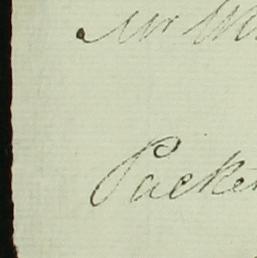 Mr
Packe